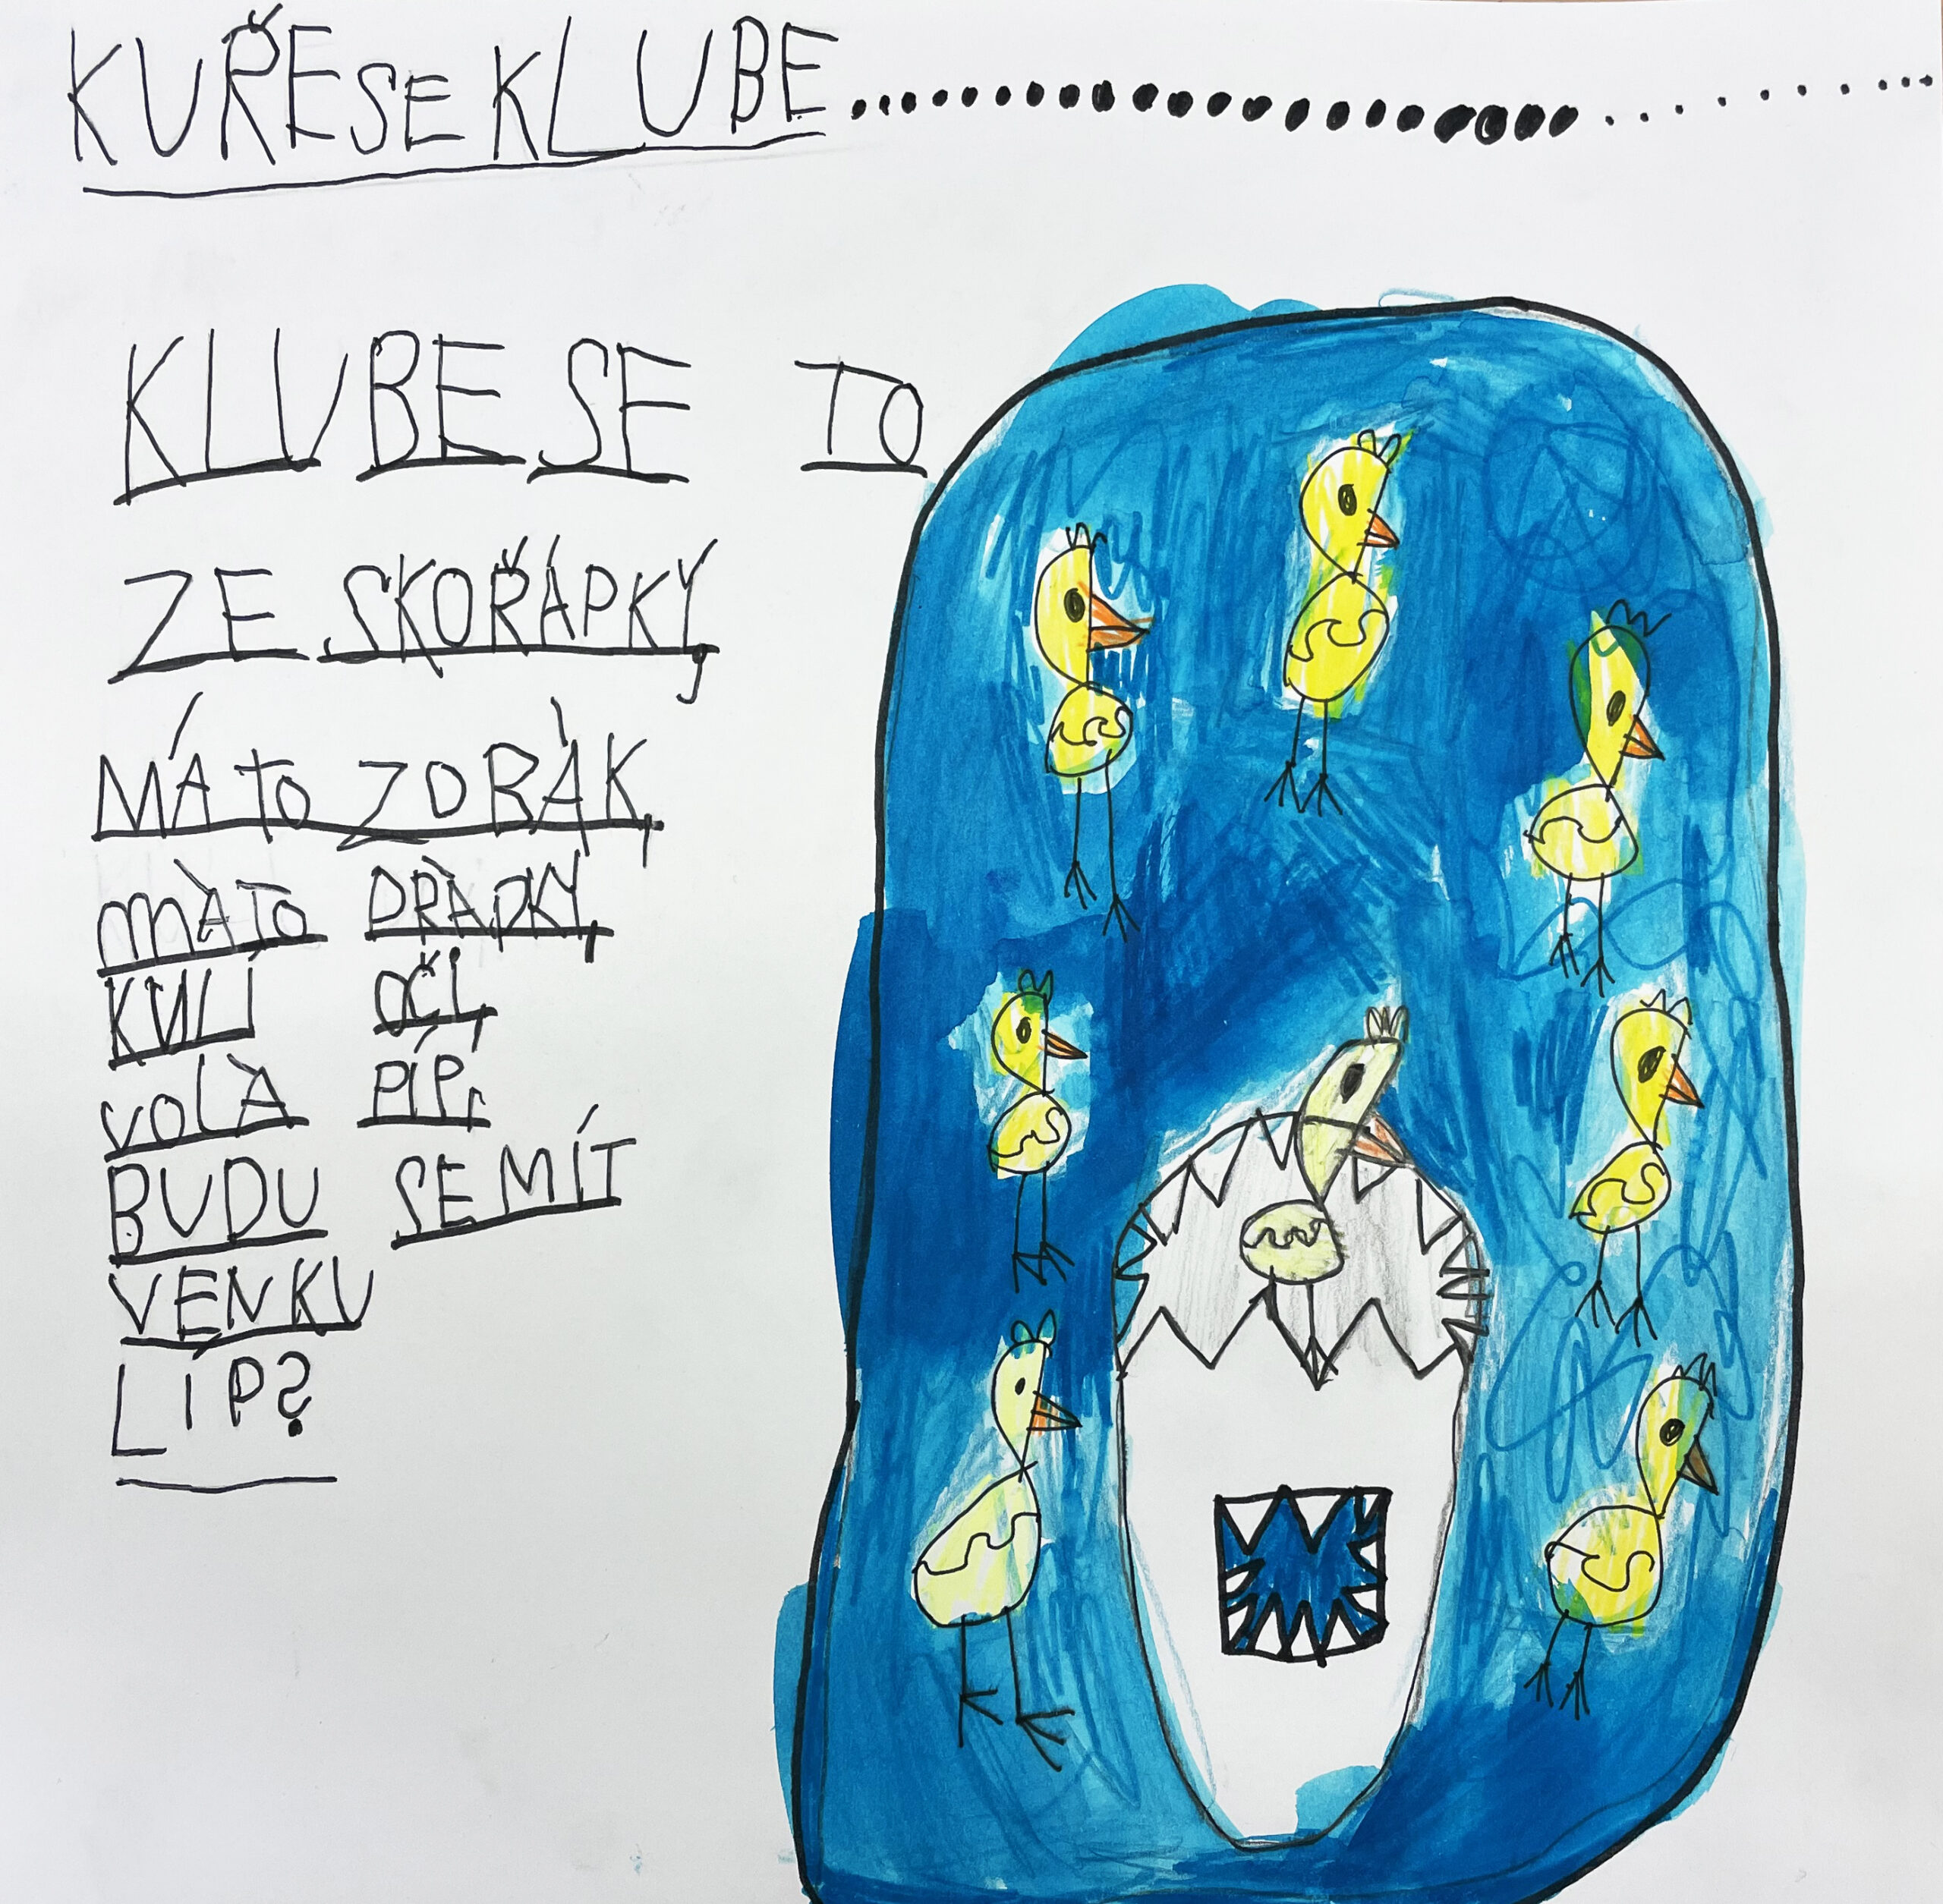 KUŘE SE KLUBE
KLUBE SE TO
ZE SKOŘÁPKY,
MÁ TO ZOBÁK,
MÁ TO DRÁPKY,
KULÍ OČI,
VOLÁ PÍP,
BUDU SE MÍT
VENKU
LÍP?